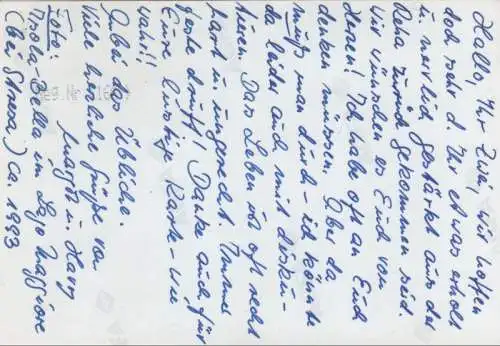 Hallo, Ihr Zwei, wir hoffen
doch sehr d. Ihr etwas erholt
u. nervlich gestärkt aus der
Reha zurück gekommen seid.
Wir wünschen es Euch von
Herzen! Ich habe oft an Euch
denken müssen. Aber da
muß man durch - ich könnte
da leider auch mit disku-
tieren. Das Leben ist oft recht
hart u. ungerecht. Immer
feste druff! Danke auch für
Eure lustige Karte - wie
wahr!!
Anbei das Übliche.
Viele herzliche Grüße von
u. Harry
Foto:
Isola Bella im Lago Maggiore
(bei Stresa) ca. 1993